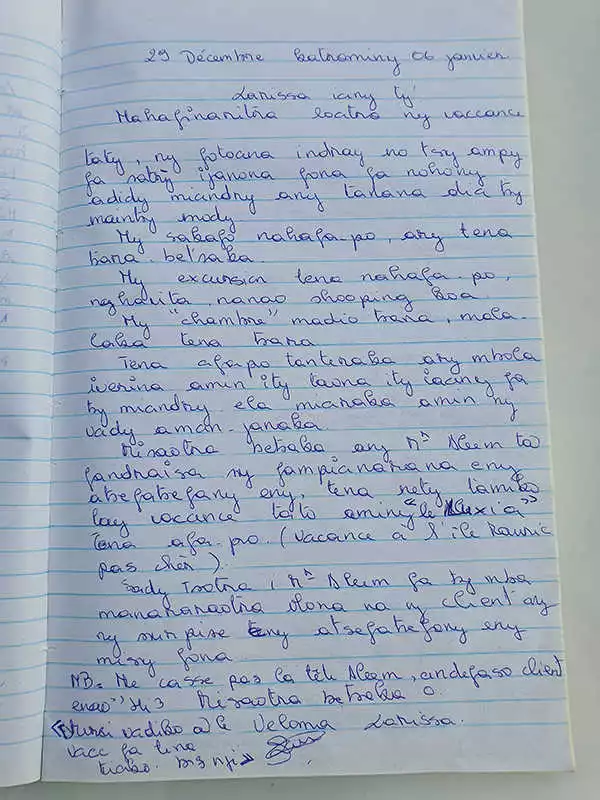 29 Décembre hatraminy 06 janvier
Larissa iany ty
Mahafinaritra hoatra ny vaccance
taty, ny fotoana indray no tsy ampy
fa satry ijanona fona fa nohony
adidy miandry any tanana dia ty
mainty mody
Ny sakafo nahafa-po, ary tena
tsara betsaka
My excursion tena nahafa-po,
nanao shooping koa
My "chambre" madio tsara, mala-
laka tena tsara
Tena afapo tanteraka ary mbola
iverina amin ity taona ity iaciny fa
ty miandry ela miaraka amin ny
vady aman-janaka
Misaotra betsaka any Mr Aleem ta
fandraisa ny fampianarana eny
atsefatsefany eny, tena nety lamiko
lay vaccance tato aminy "le Luxia"
Tena afa-po. (vacance à l'île Maurice
pas cher).
Sady Isotra, Mr Aleem fa ty mba
manararaotra olona na ny client ary
ny surpise eny atsefatsefany eny
misy fona
NB: Ne casse pas la tête Aleem, andefaso client
enao" Hi 3 Misaotra betsaka o.
vadiko a le Veloma Larissa.
vacc fa tena
tiako.